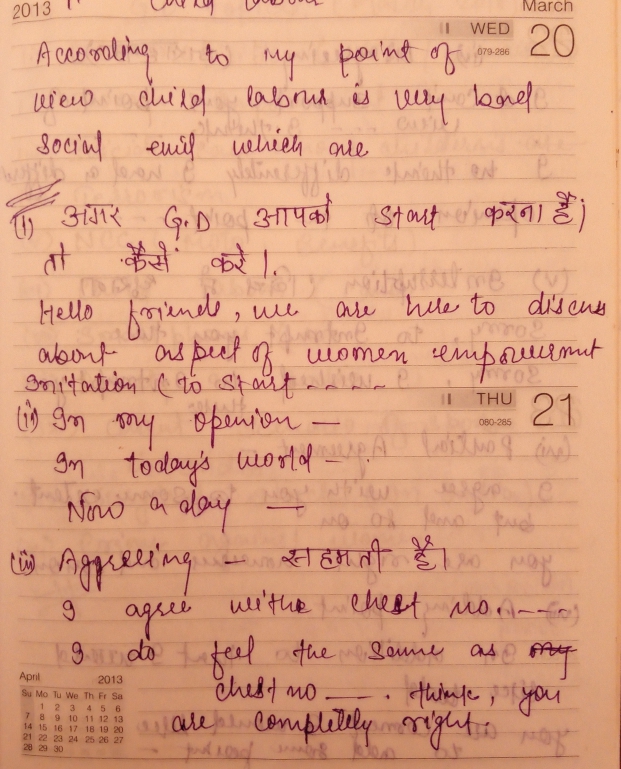 2013
March
WED
079-286
20
According to my point of
view child labour is very bad
social evil which are
(i) अगर G.D आपको start करना है।
तो कैसे करे।
Hello friends, we are here to discus
about aspect of women empowerment
Initation (to start ----
THU
080-285
21
(ii) In my openion —
In today's world —.
Now a day —
(iii) Aggreeing — सहमती है।
I agree withe chest no. ----
I do feel the same as my
chest no —. think, you
are completely right.
April 2013
Su Mo Tu We Th Fr Sa
1 2 3 4 5 6
7 8 9 10 11 12 13
14 15 16 17 18 19 20
21 22 23 24 25 26 27
28 29 30